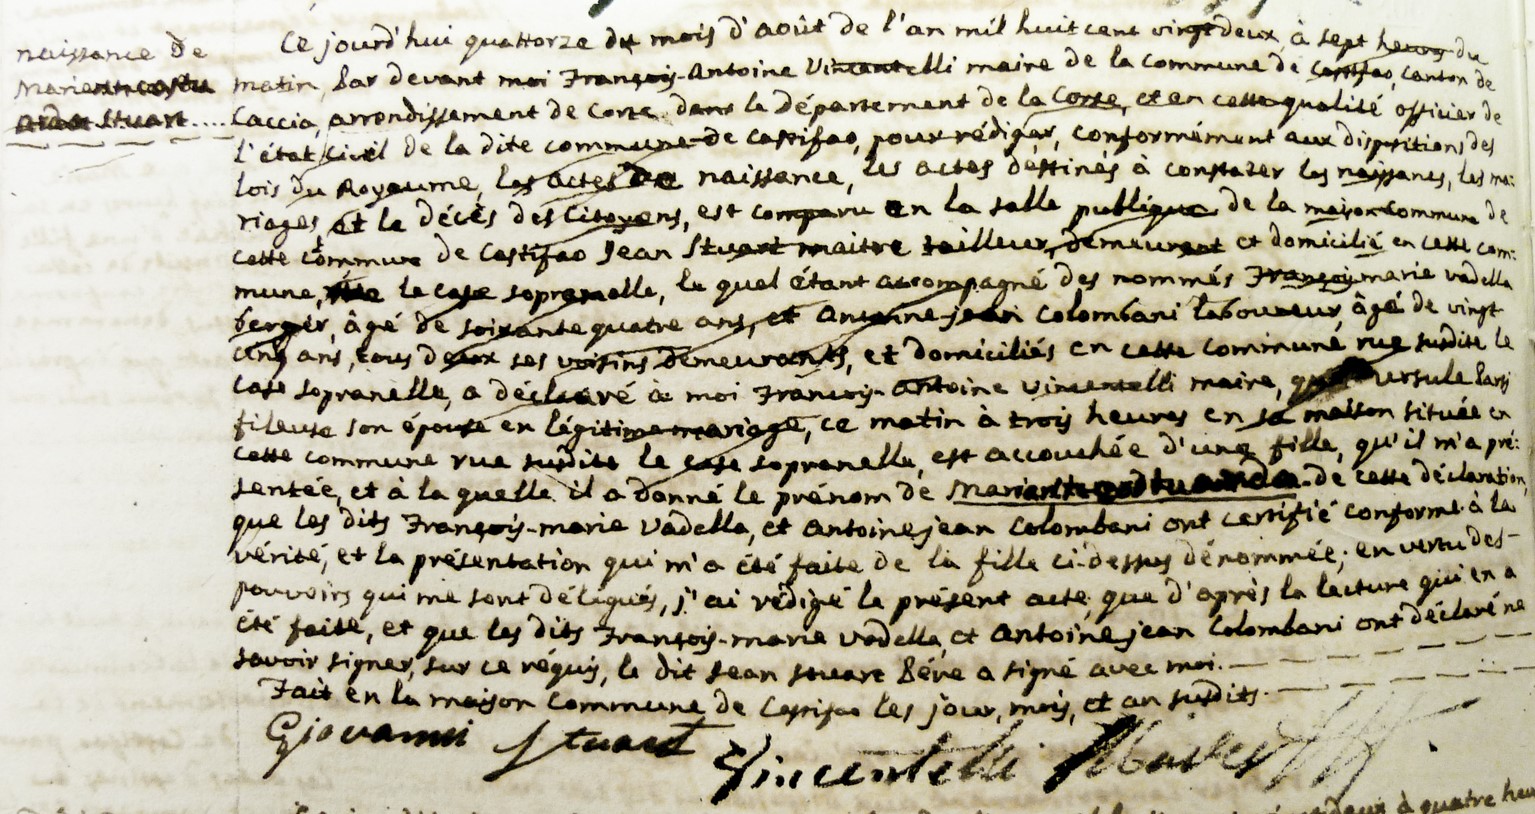 naissance de
Ce jourd'hui quattorze du mois d'août de l'an mil huit cent vingt deux, à sept heures du
matin, Par devant moi François-Antoine Vincentelli maire de la commune de Castifao, canton de
Stuart
Caccia, arrondissement de Corte, dans le Département de la Corse, et en cette qualité officier de
l'état civil de la dite commune de Castifao, pour rédiger, conformément aux dispositions des
lois du Royaume, les actes de naissance, les actes déstinés à constater les naissances, les ma:
riages, et le décès des Citoyens, est comparu en la salle publique de la maison commune de
cette commune de Castifao Jean Stuart maitre tailleur, demeurant et domicilié en cette com:
mune, le case sopranelle, le quel étant accompagné des nommés François marie vadella
berger, âgé de soixante quatre ans, et Antoine-jean Colombani laboureur, âgé de vingt
cinq ans, tous deux ses voisins demeurants, et domiciliés en cette commune rue susdite le
case sopranelle, a déclaré à moi François-Antoine Vincentelli maire, ursule
fileuse son épouse en légitime mariage, ce matin à trois heures en sa maison située en
cette commune rue susdite le case sopranelle, est accouchée d'une fille, qu'il m'a pré:
sentée, et à la quelle il a donné le prénom de de cette déclaration,
que les dits François-marie Vadella, et Antoine jean Colombani ont certifié conforme à la
vérité, et la présentation qui m'a été faite de la fille ci-dessus dénommée; en vertu des-
pouvoirs qui me sont délégués, j'ai rédigé le présent acte, que d'après la lecture qui en a
été faite, et que les dits François-marie Vadella, et Antoine jean Colombani ont déclaré ne
savoir signer, sur ce réquis, le dit Jean Stuart Père a signé avec moi.
Fait en la maison Commune de Castifao les jour, mois, et an susdits.
Giovanni Stuart
Vincentelli